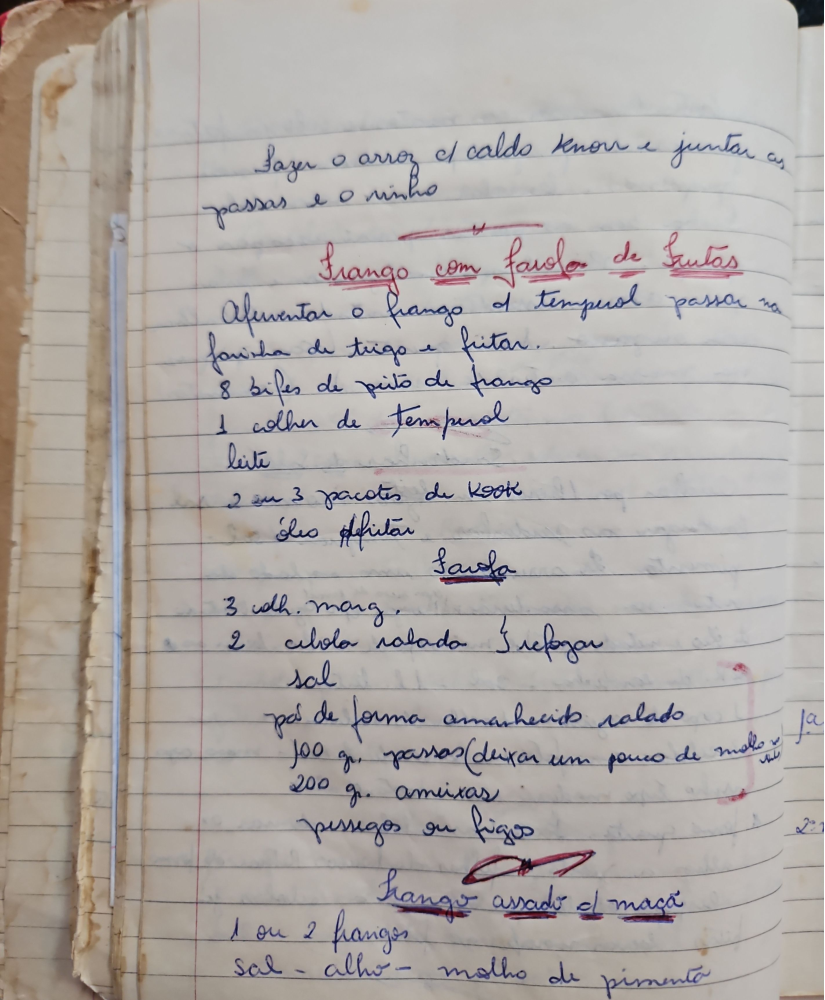 Fazer o arroz c/ caldo Knorr e juntar as
passas e o vinho
Frango com farofa de Frutas
Aferventar o frango c/ temperol passar na
farinha de trigo e fritar.
8 bifes de peito de frango
1 colher de temperol
leite
2 ou 3 pacotes de KOOK
óleo p/fritar
Farofa
3 colh. marg.
2 cebola ralada } refogar
sal
pão de forma amanhecido ralado
100 gr. passas (deixar um pouco de molho
200 gr. ameixas
pessegos ou figos
1ª
Frango assado c/ maçã
1 ou 2 frangos
sal - alho - molho de pimenta